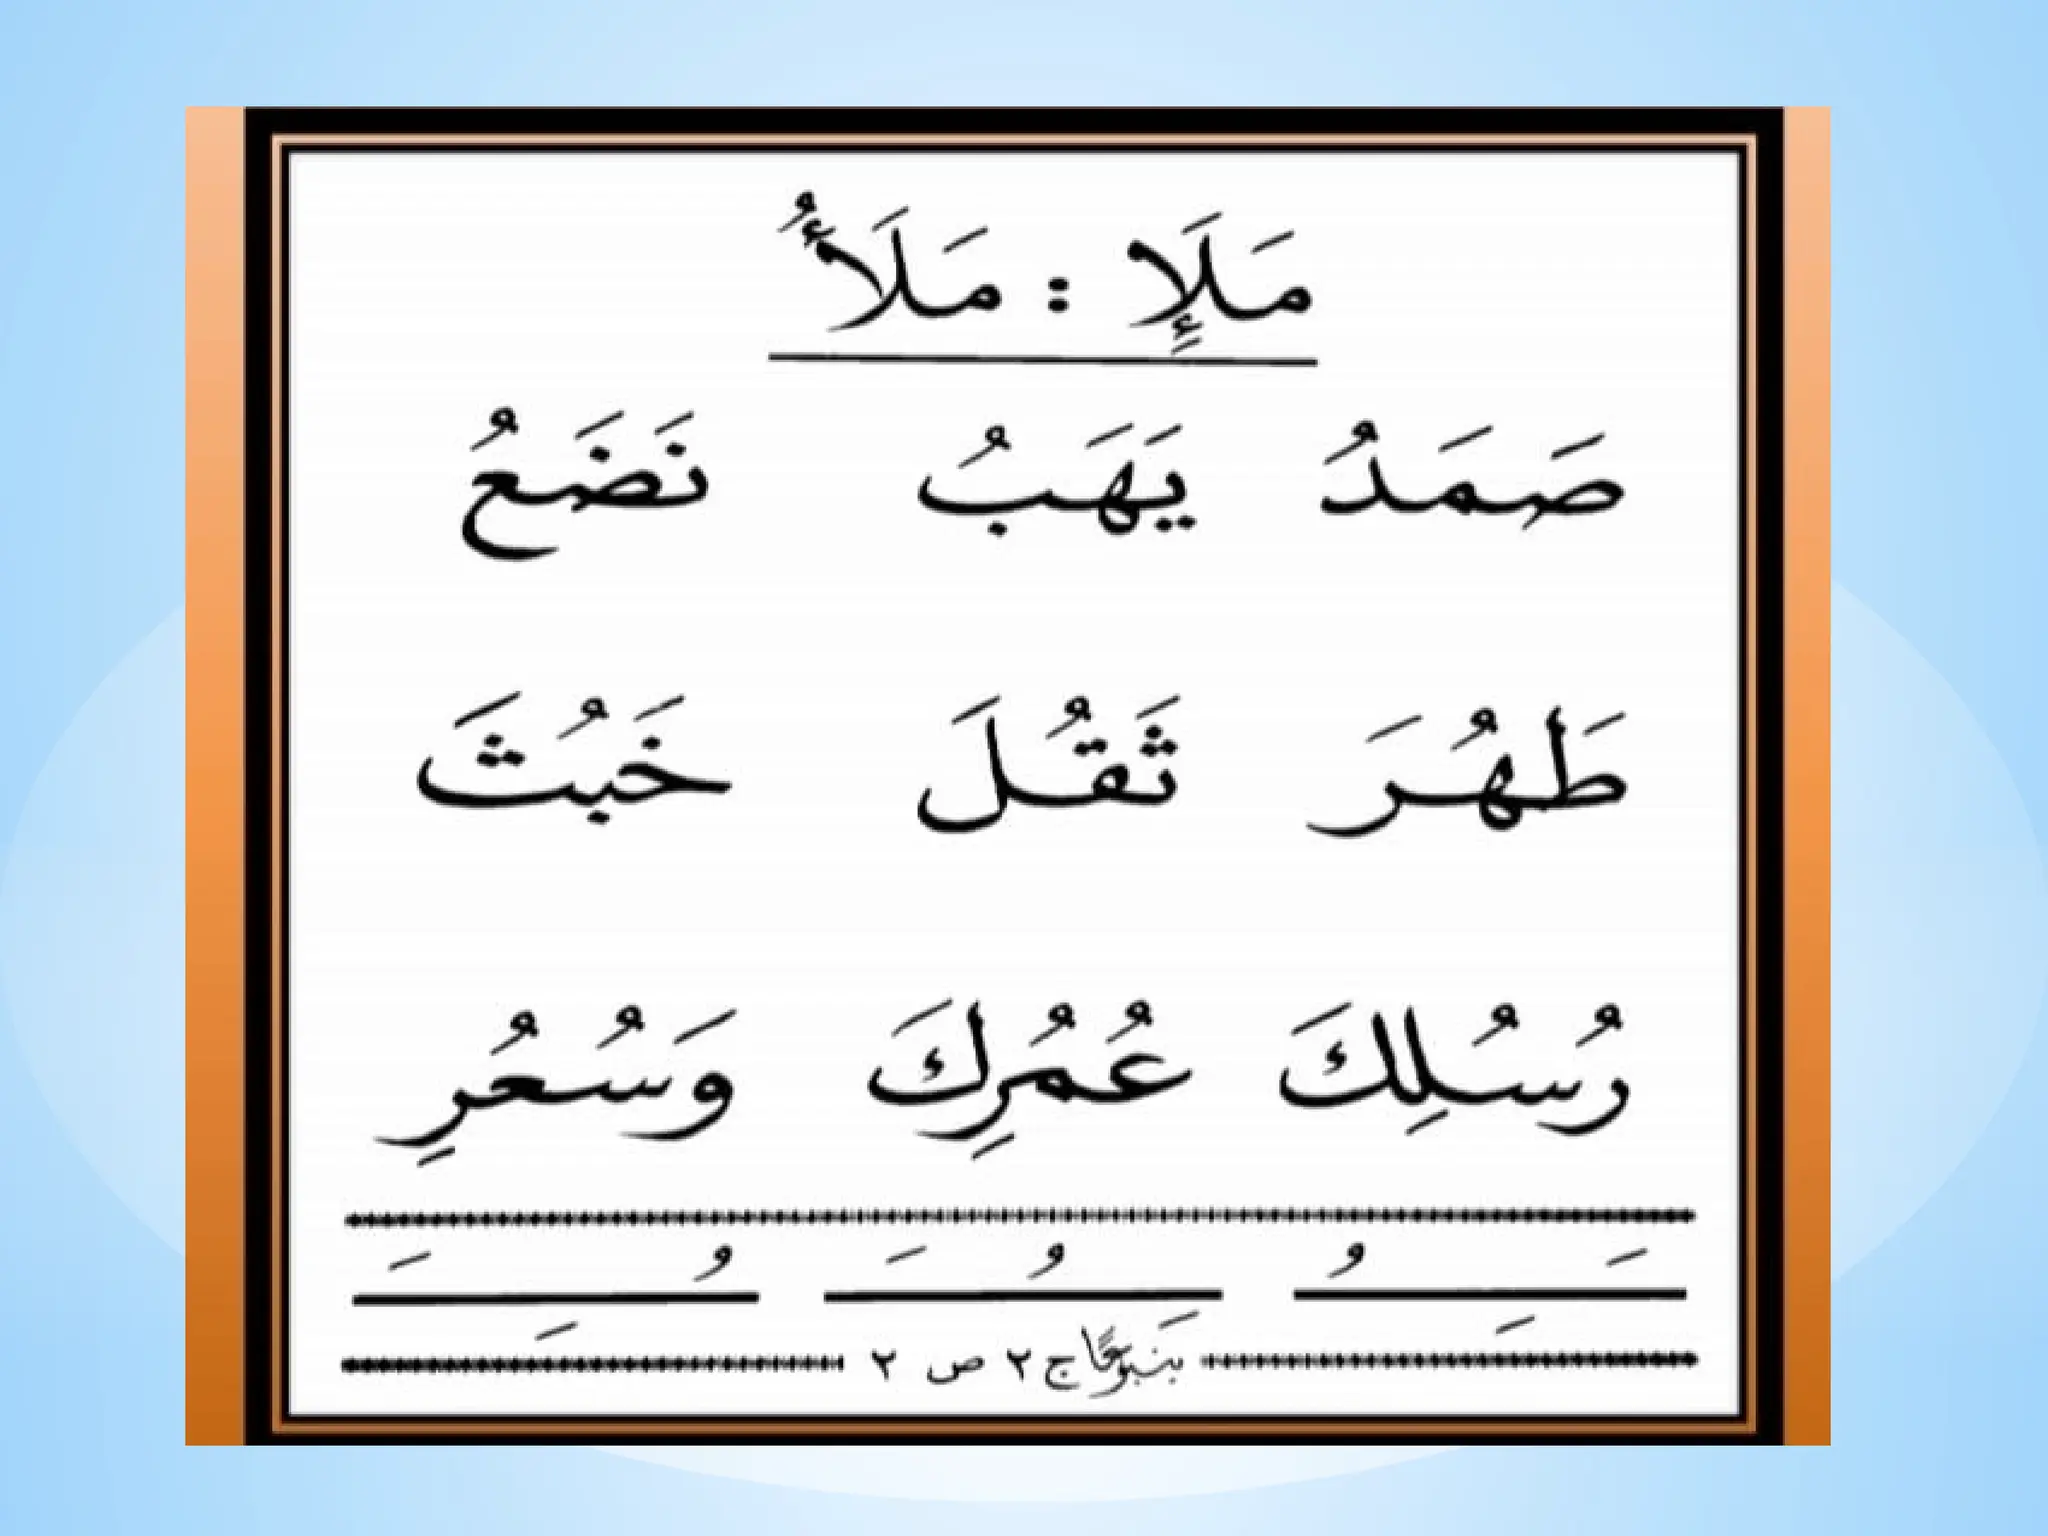 مَلَإِ : مَلَأُ
صَمَدُ يَهَبُ نَضَعُ
طَهُرَ ثَقُلَ خَبُثَ
رُسُلِكَ عُمُرِكَ وَسُعُرِ
َ ِ ُ ُ َ ُ ِ َ
يَنبوعًا ج ٢ ص ٢